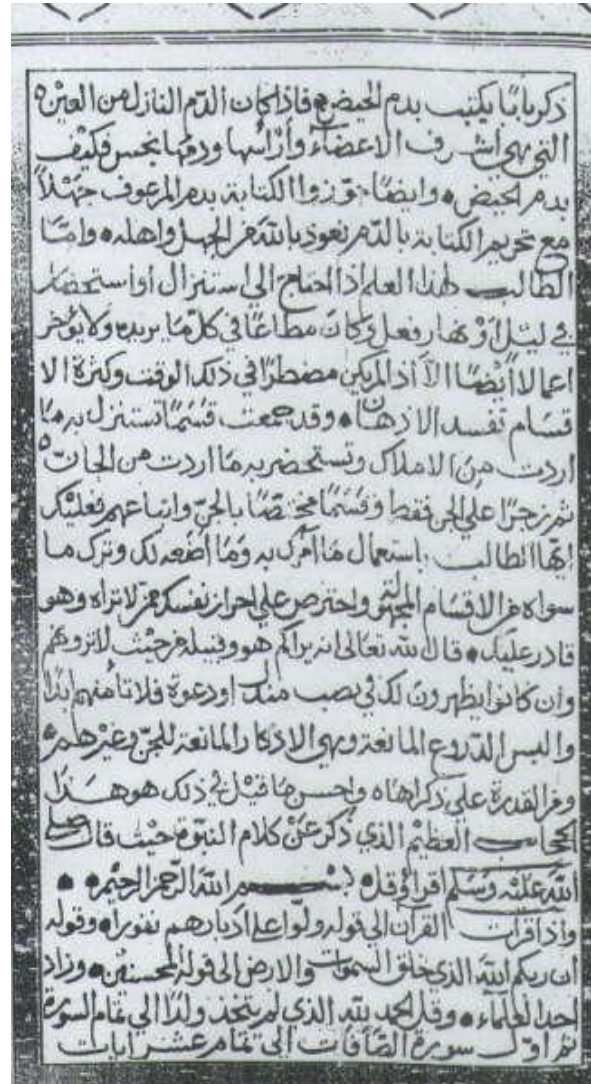 ذكر بابًا يكتب بدم الحيض فاذا كان الدّم النازل من العين
التي هي أشرف الاعضاء وأرأسها ودمها نجس فكيف
بدم الحيض وايضًا جوّزوا الكتابة بدم المرعوف جَهْلاً
مع تحريم الكتابة بالدّم نعوذ بالله من الجهل واهله وامّا
الطالب لهذا العلم اذا احتاج الي استنزال أو استحضار
في ليل أوْ نهار فعل وكان مطاعًا في كلّ مّا يريده ولا يؤخر
اعمالا أيْضًا الاّ اذ الم يكن مضطرّا في ذلك الوقت وكثرة الا
قسام تفسد الاذهان وقد جمعت قسَمًا تستنزل به مَا
اردت مِنَ الاملاك وتستحضر به مَا اردت من الجانّ
ثم زجرًا علي الجن فقط وقسَمًا مختصًّا بالجنّ واتباعهم فعليْك
ايّها الطالب باستعمال مَا آمُرك به وَمَا اضَعه لك وترك مَا
سواه من الاقسَام المجهولة واحترص علي احراز نفسك ممّن لا تراه وهو
قادر عليك قال الله تعالى انه يراكم هو وقبيله من حيْث لا ترونهم
وان كانوا يظهرونَ لك في نصب مندل او دعوة فلا تأمنهم ابدًا
والبس الدّروع المانعة وهي الاذكار المانعة للجنّ وغيْرهم
ومن القدرة على ذكراهَا واحسن مَا قيْل في ذلك هو هَذا
الحجاب العظيْم الذي ذكر عَنْ كلام النبوّة حيْث قال صلي
الله عَليْه وَسَلم اقرأ وقل بسْم الله الرّحمن الرحيْم
واذا قرأت القرآن الي قوله ولّوا علي أدبارهم نفورا وقوله
ان ربكم الله الذي خلق السموات والارض الى قوله المحسنيْن وزاد
احد العلمآء وقل الحمد لله الذي لم يتخذ ولدًا الي تمام السورة
ثم اوّل سورة الصّافات الي تمام عشر ايات